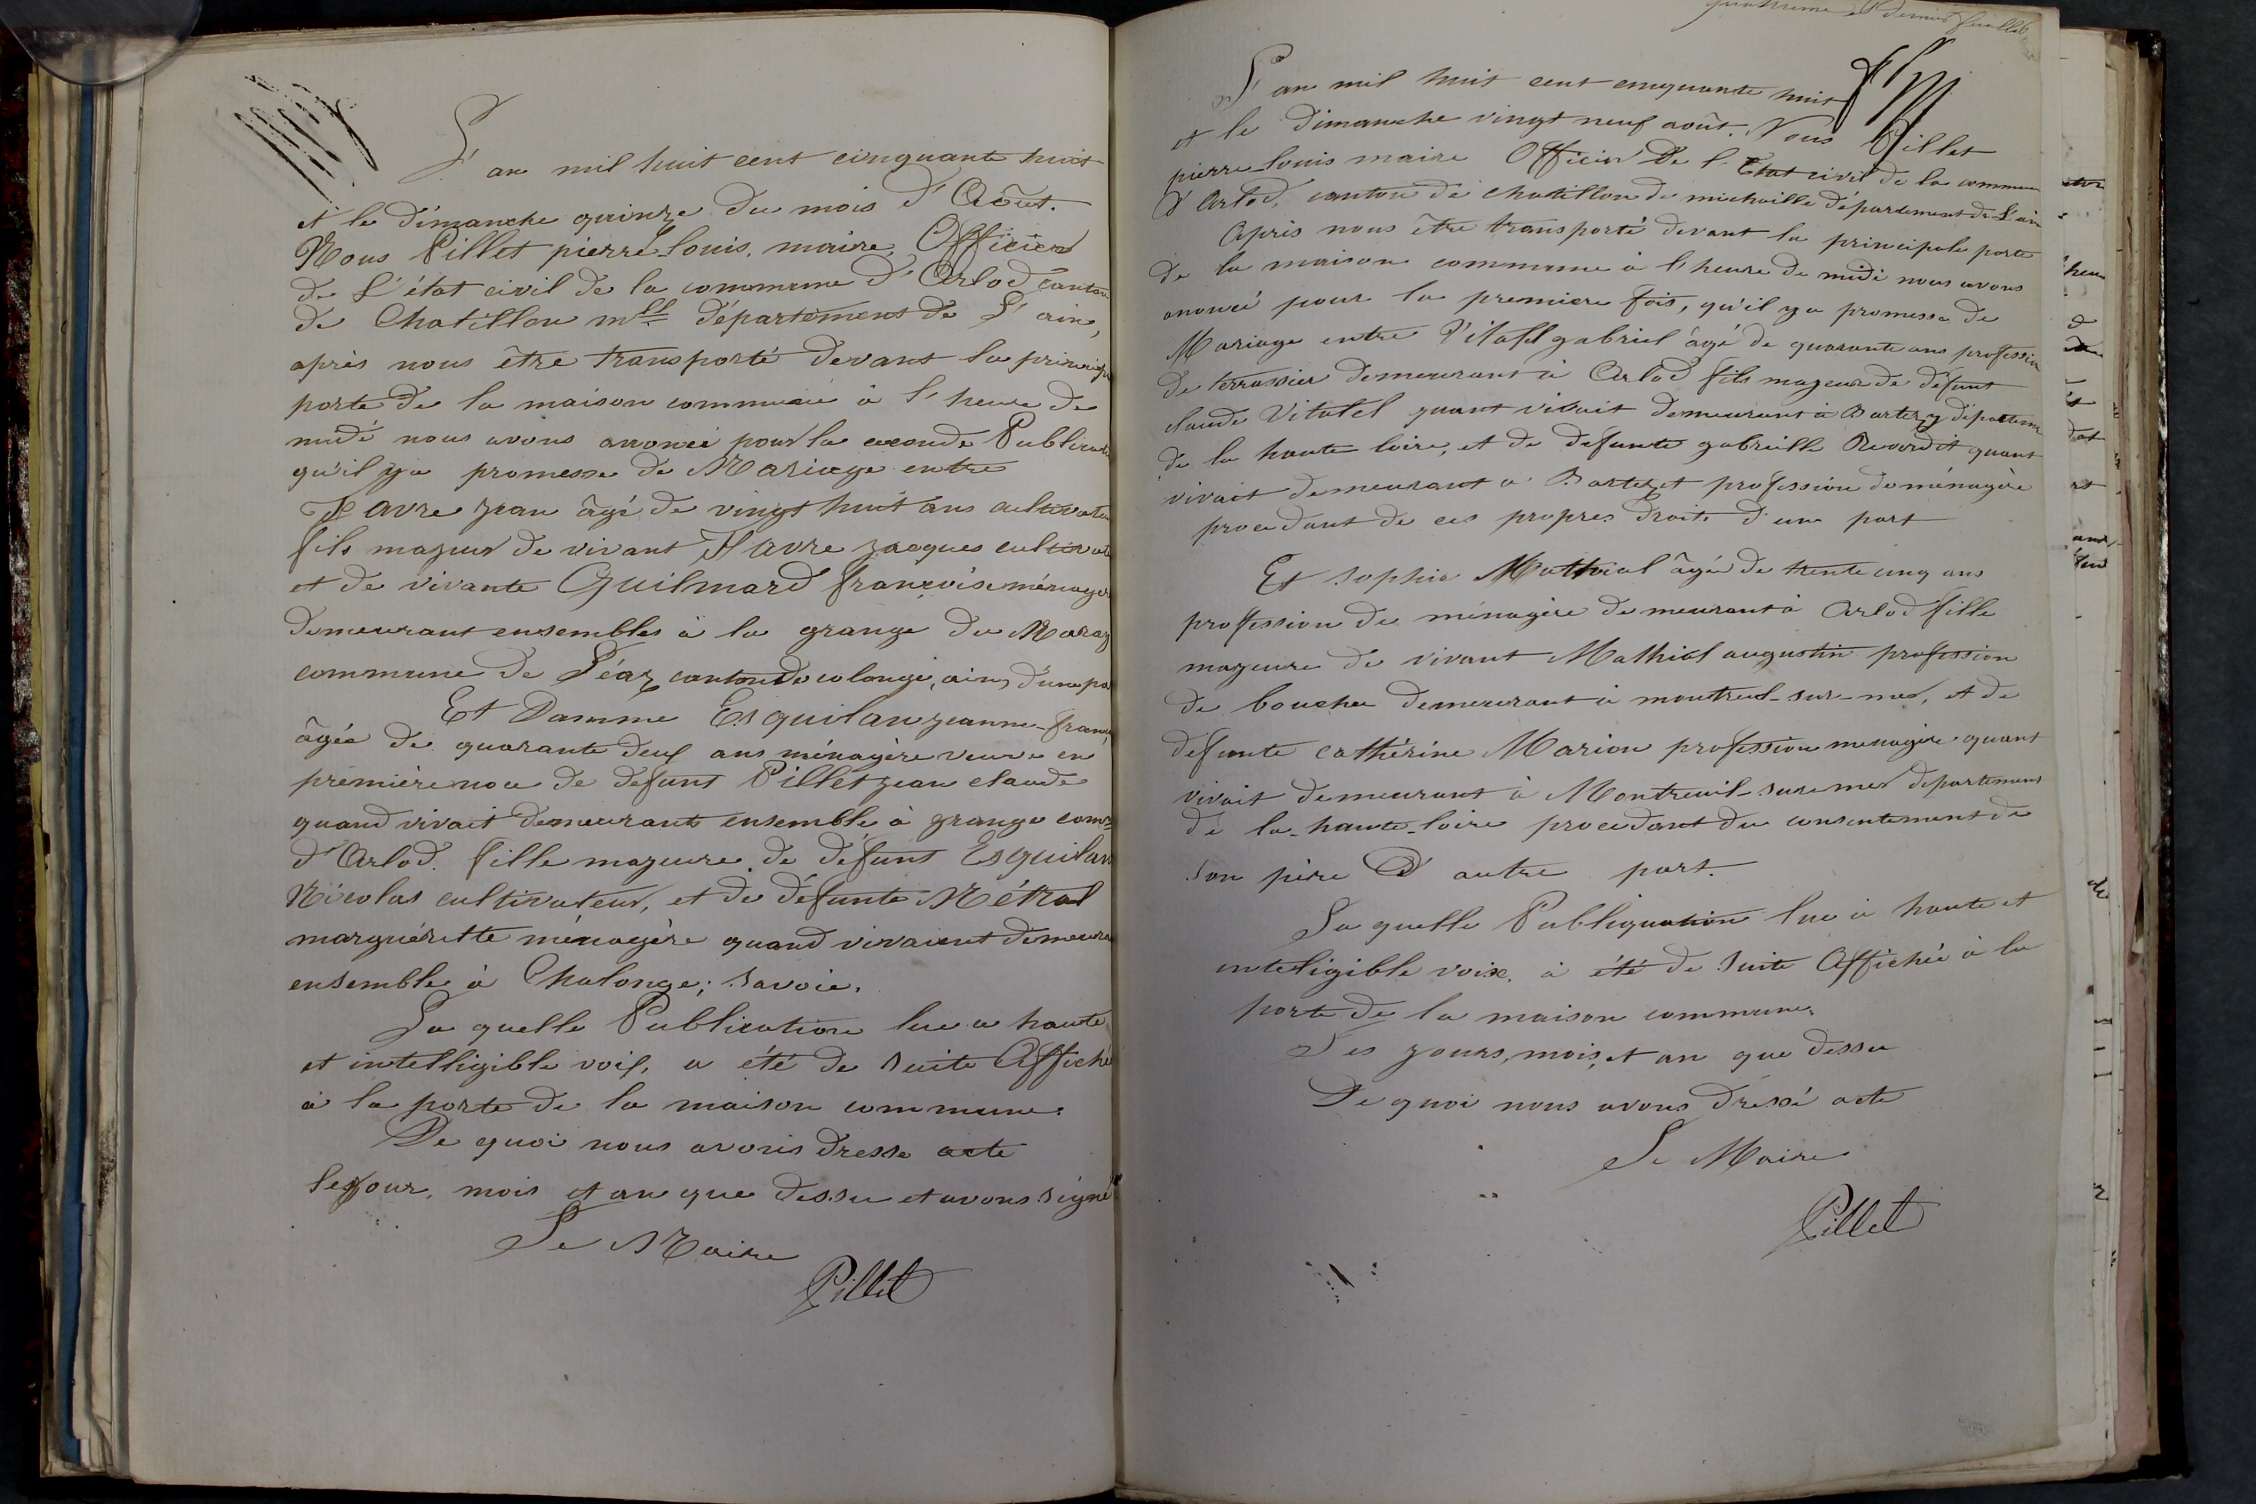 L'an mil huit cent cinquante huit
et le dimanche quinze du mois d'Août.
Nous Pillet pierre-louis, maire, Officier
de L'état civil de la commune d'Arlod canton
de Chatillon mlle département de L'ain,
après nous être transporté devant la principa
porte de la maison commune à l'heure de
midi nous avons anoncé pour la ceconde Publicati
qu'il y a promesse de Mariage entre
Favre jean âgé de vingt huit ans cultivateu
fils majeur de vivant Favre jacques cultivat
et de vivante Guilmard françoise ménagèr
demeurant ensembles à la grange du Maraz
commune de Léaz canton de colonge, ain, d'une pa
Et Damme Esquilan jeanne-franç
âgée de quarante deux ans ménagère veuve en
première noce de defunt Pillet jean claude
quand vivait demeurants ensemble à grange comne
d'Arlod. fille majeure de défunt Esquilan
Nicolas cultivateur, et de défunte Métral
marguérette ménagère quand vivaient demeura
ensemble à Chalonge; savoie.
La quelle Publication lue a haute
et intelligible voix, a été de suite Affiché
à la porte de la maison commune.
De quoi nous avons dresse acte
Les jour, mois et an que dessu et avons signé
Le Maire
Pillet
quatrieme et dernier feuillet
L'an mil huit cent cinquante huit
et le dimanche vingt neuf août. Nous Pillet
pierre-louis maire Officier De l'Etat civil de la commun
d'Arlod, canton de chatillon de michaille département de L'ain
Après nous être transporté devant la principale porte
de la maison commune à l'heure de midi nous avons
anoncé pour la premiere fois, qu'il y a promesse de
Mariage entre Vitatel gabriel âgé de quarante ans profession
de terrassier demeurant à Arlod fils majeur de défunt
claude Vitatel quant vivait demeurant à Bartez département
de la haute loire, et de defunte gabrielle Revordit quant
vivait demeurant a Bartez et profession de ménagère
procedant de ces propres droits d'une part
Et sophie Mathial âgée de trente cinq ans
profession de ménagère demeurant à Arlod fille
majeure de vivant Mathial augustin profession
de boucher demeurant à montreul-sur-mer, et de
defunte cathérine Marion profession menagère quant
vivait demeurant à Montreuil-sur mer departement
de la-haute-loire procedant du consentement de
son père D'autre part.
La quelle Publiquation lue à haute et
inteligible voix, à été de suite Affichée à la
porte de la maison commune.
Les jours, mois, et an que dessu
De quoi nous avons dressé acte
Le Maire
Pillet